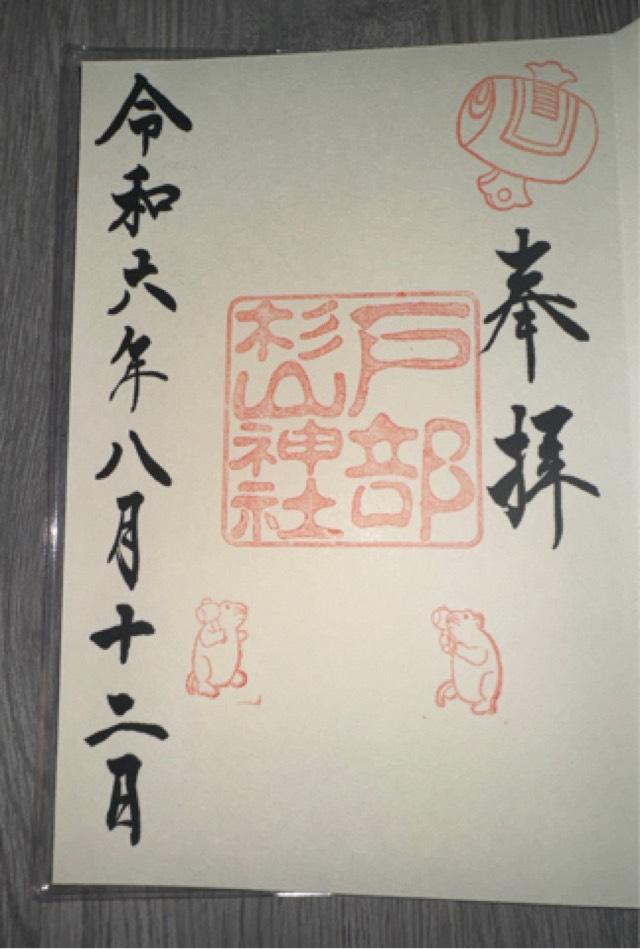 奉拝
戸部
杉山神社
令和六年八月十二日